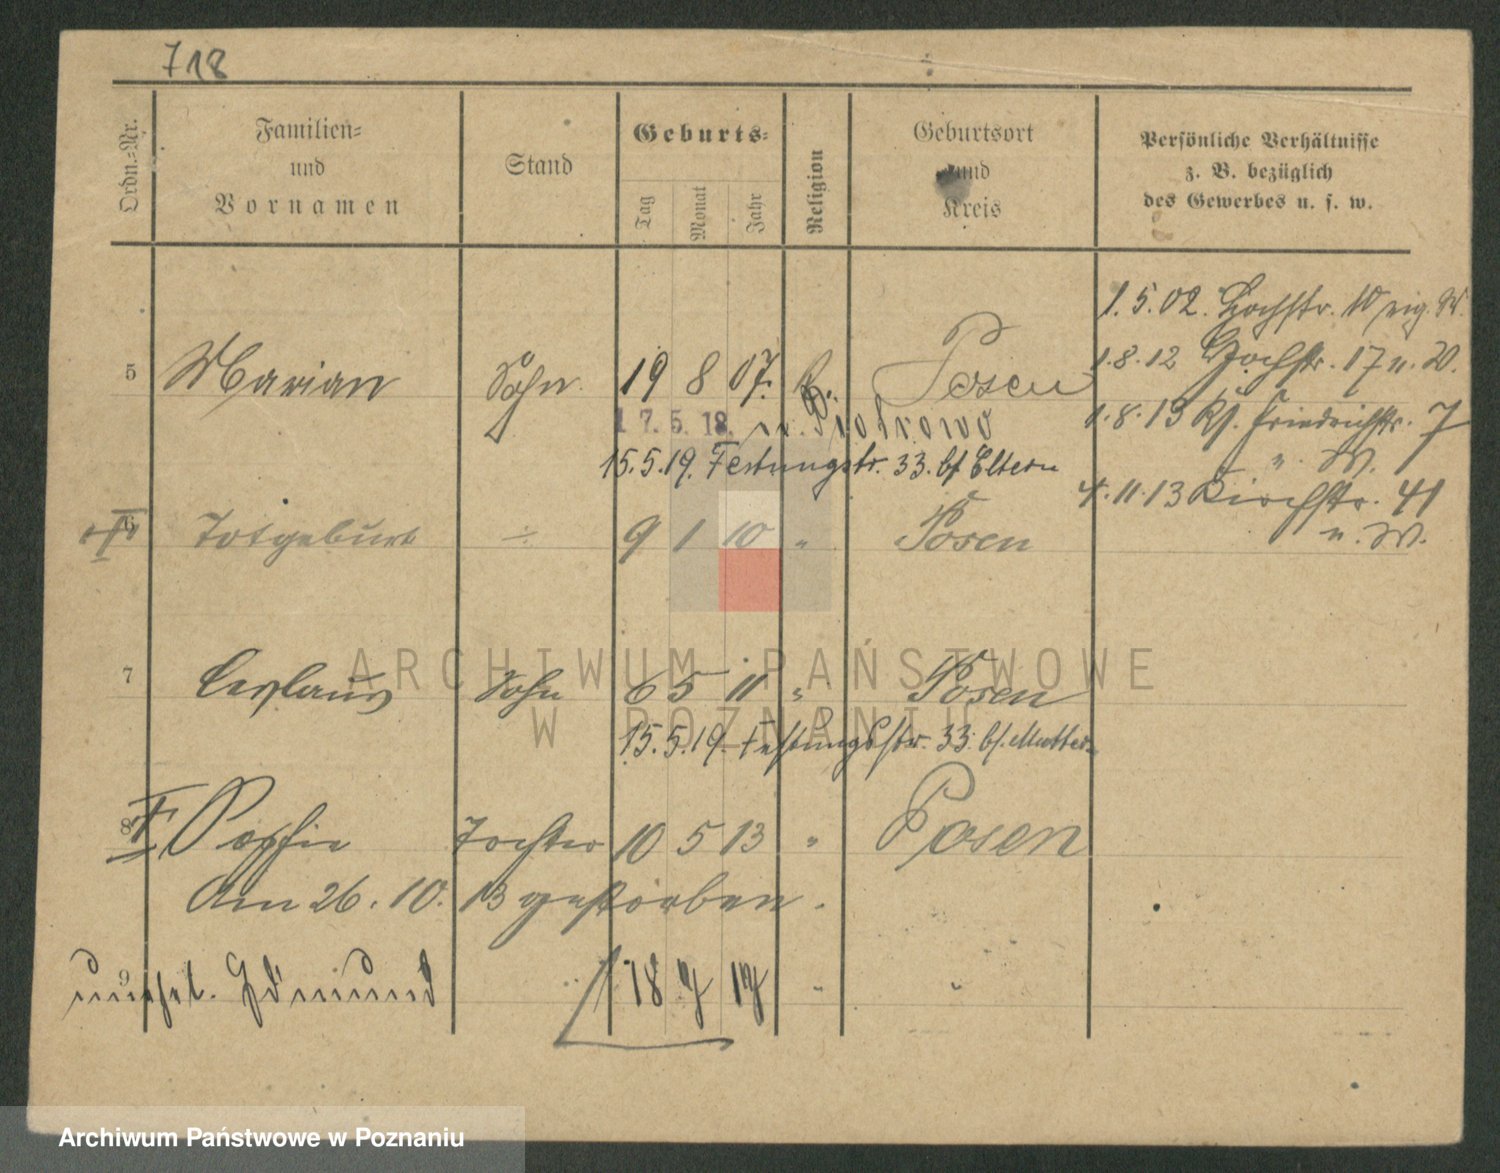 718
Ordn.-Nr.
Familien-
und
Vornamen
Stand
Geburts-
Tag
Monat
Jahr
Religion
Geburtsort
und
Kreis
Persönliche Verhältnisse
z. B. bezüglich
des Gewerbes u. s. w.
1.5.02. Hochstr. 10 eig. W.
1.8.12 Hochstr. 17 u. W.
1.8.13 Kf. Friedrichstr. 7
u. W.
4.11.13 Kirchstr. 41
u. W.
5 Marian Sohn 19 8 07. Posen
17.5.18. n. Piotrowo
15.5.19. Festungstr. 33. bf Eltern
6 Totgeburt ÷ 9 1 10 " Posen
7 Ceslaus Sohn 6 5 11 " Posen
15.5.19. Festungsstr. 33. bf. Mutter
8 Sophie Tochter 10 5 13 " Posen
Am 26.10.13 gestorben.
9 unehel. Edmund 18 " "
ARCHIWUM PAŃSTWOWE
W POZNANIU
Archiwum Państwowe w Poznaniu